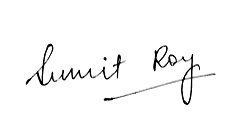 Sumit Roy